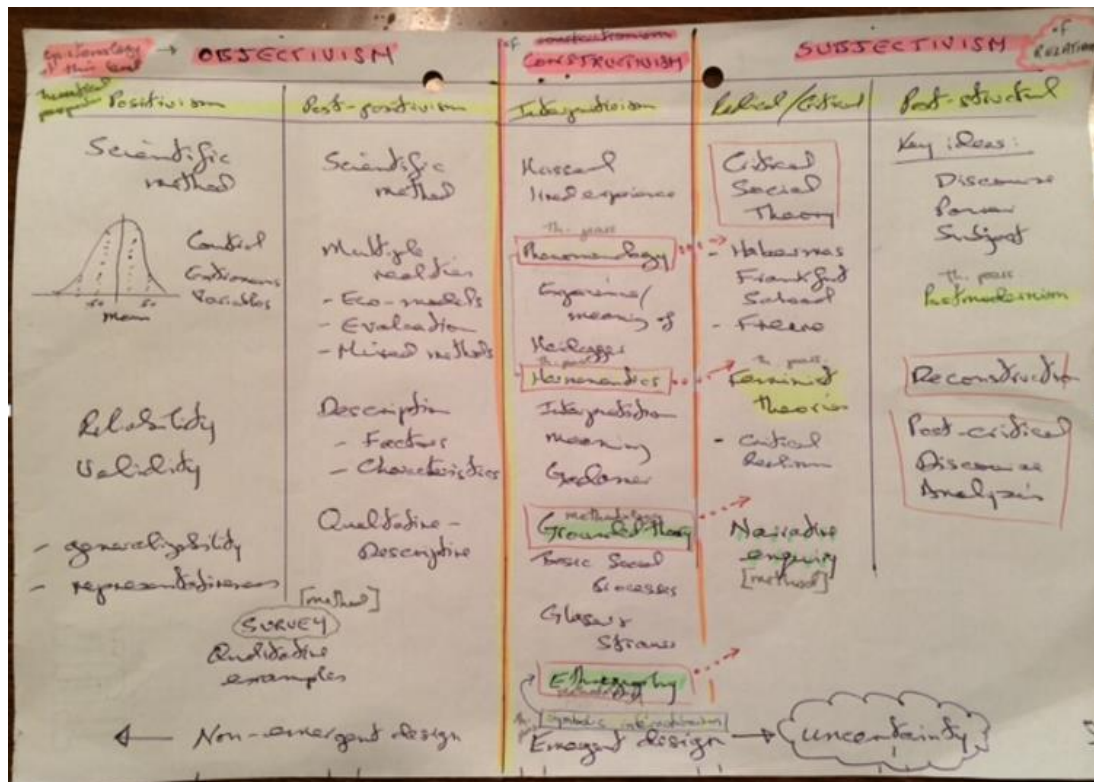 Epistemology at this level → OBJECTIVISM
of constructionism
CONSTRUCTIVISM
SUBJECTIVISM
of
Theoretical perspective
Positivism
Post-positivism
Interpretivism
Radical/Critical
Post-structural
Scientific
method
Control
Extraneous
Variables
-SD
SD
Mean
Reliability
Validity
- generalizability
- representativeness
Scientific
method
Multiple
realities
- Eco-models
- Evaluation
- Mixed methods
Description
- Factors
- Characteristics
Qualitative-
Descriptive
[method]
SURVEY
Qualitative
examples
Husserl
lived experience
Th. persp.
Phenomenology
Experience/
meaning of
Heidegger
Th. persp.
Hermeneutics
Interpretation
meaning
Gadamer
methodology
Grounded theory
Basic Social
Processes
Glaser
Strauss
Ethnography
methodology
[symbolic interactionism]
Critical
Social
Theory
- Habermas
Frankfurt
School
- Freire
Th. persp.
Feminist
theories
- Critical
Realism
Narrative
enquiry
[method]
Key ideas:
Discourse
Power
Subject
Th. persp.
Postmodernism
Deconstruction
Post-critical
Discourse
Analysis
← Non-emergent design
Emergent design → uncertainty